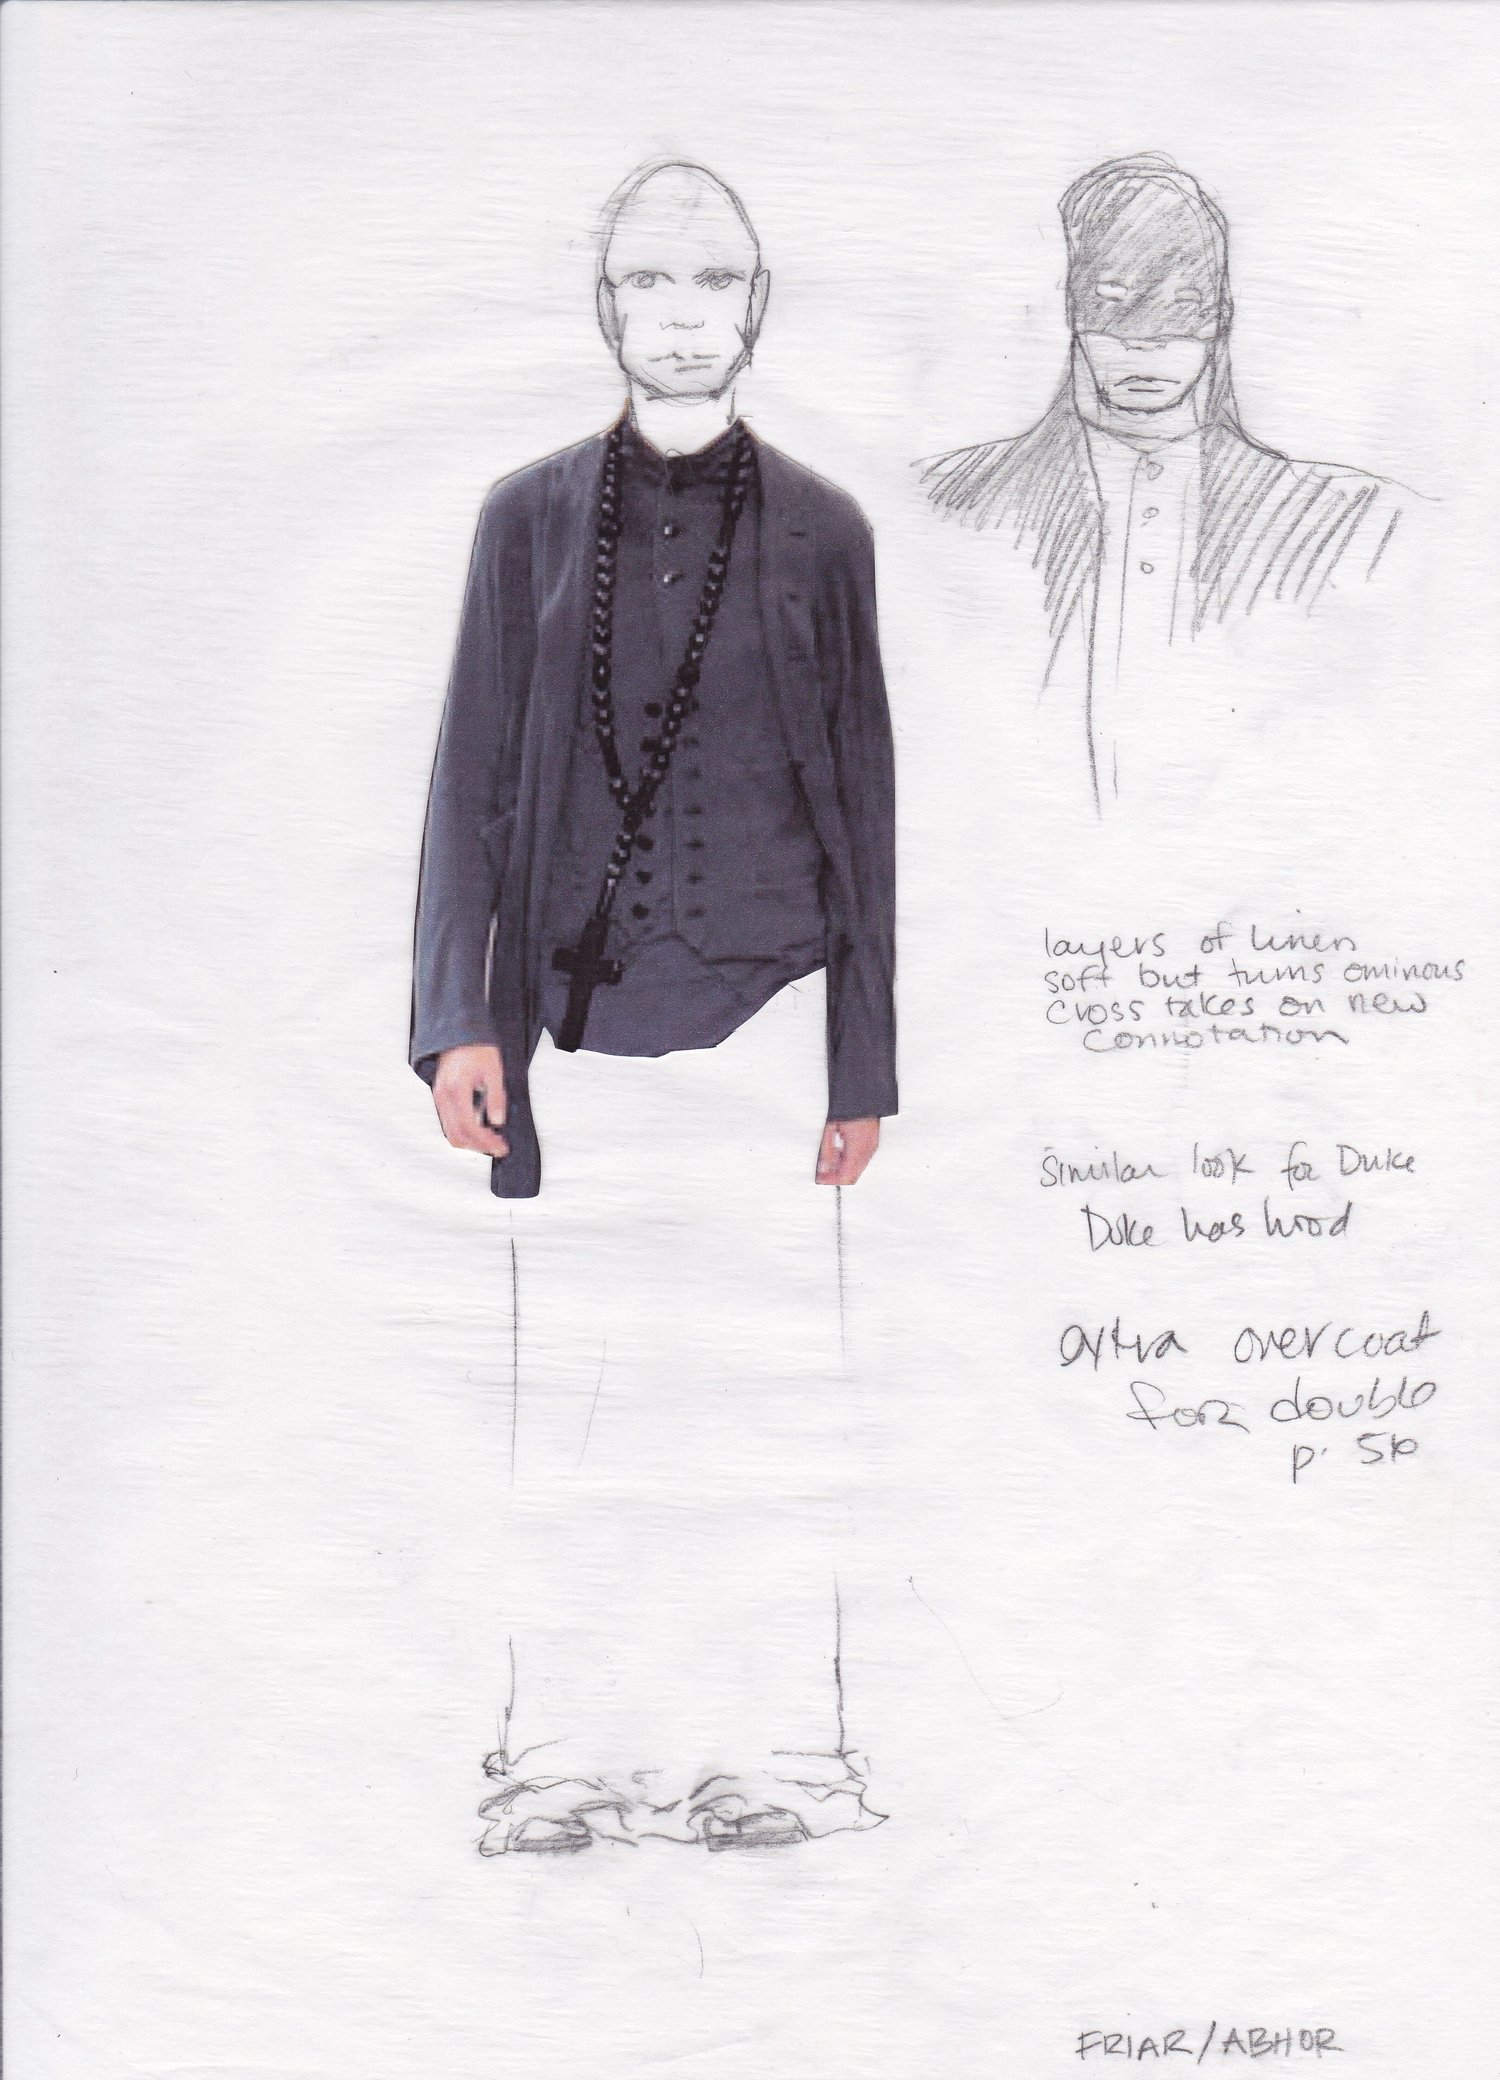 layers of linen
soft but turns ominous
cross takes on new
connotation
similar look for Duke
Duke has hood
extra overcoat
for double
p. 56
FRIAR/ABHOR